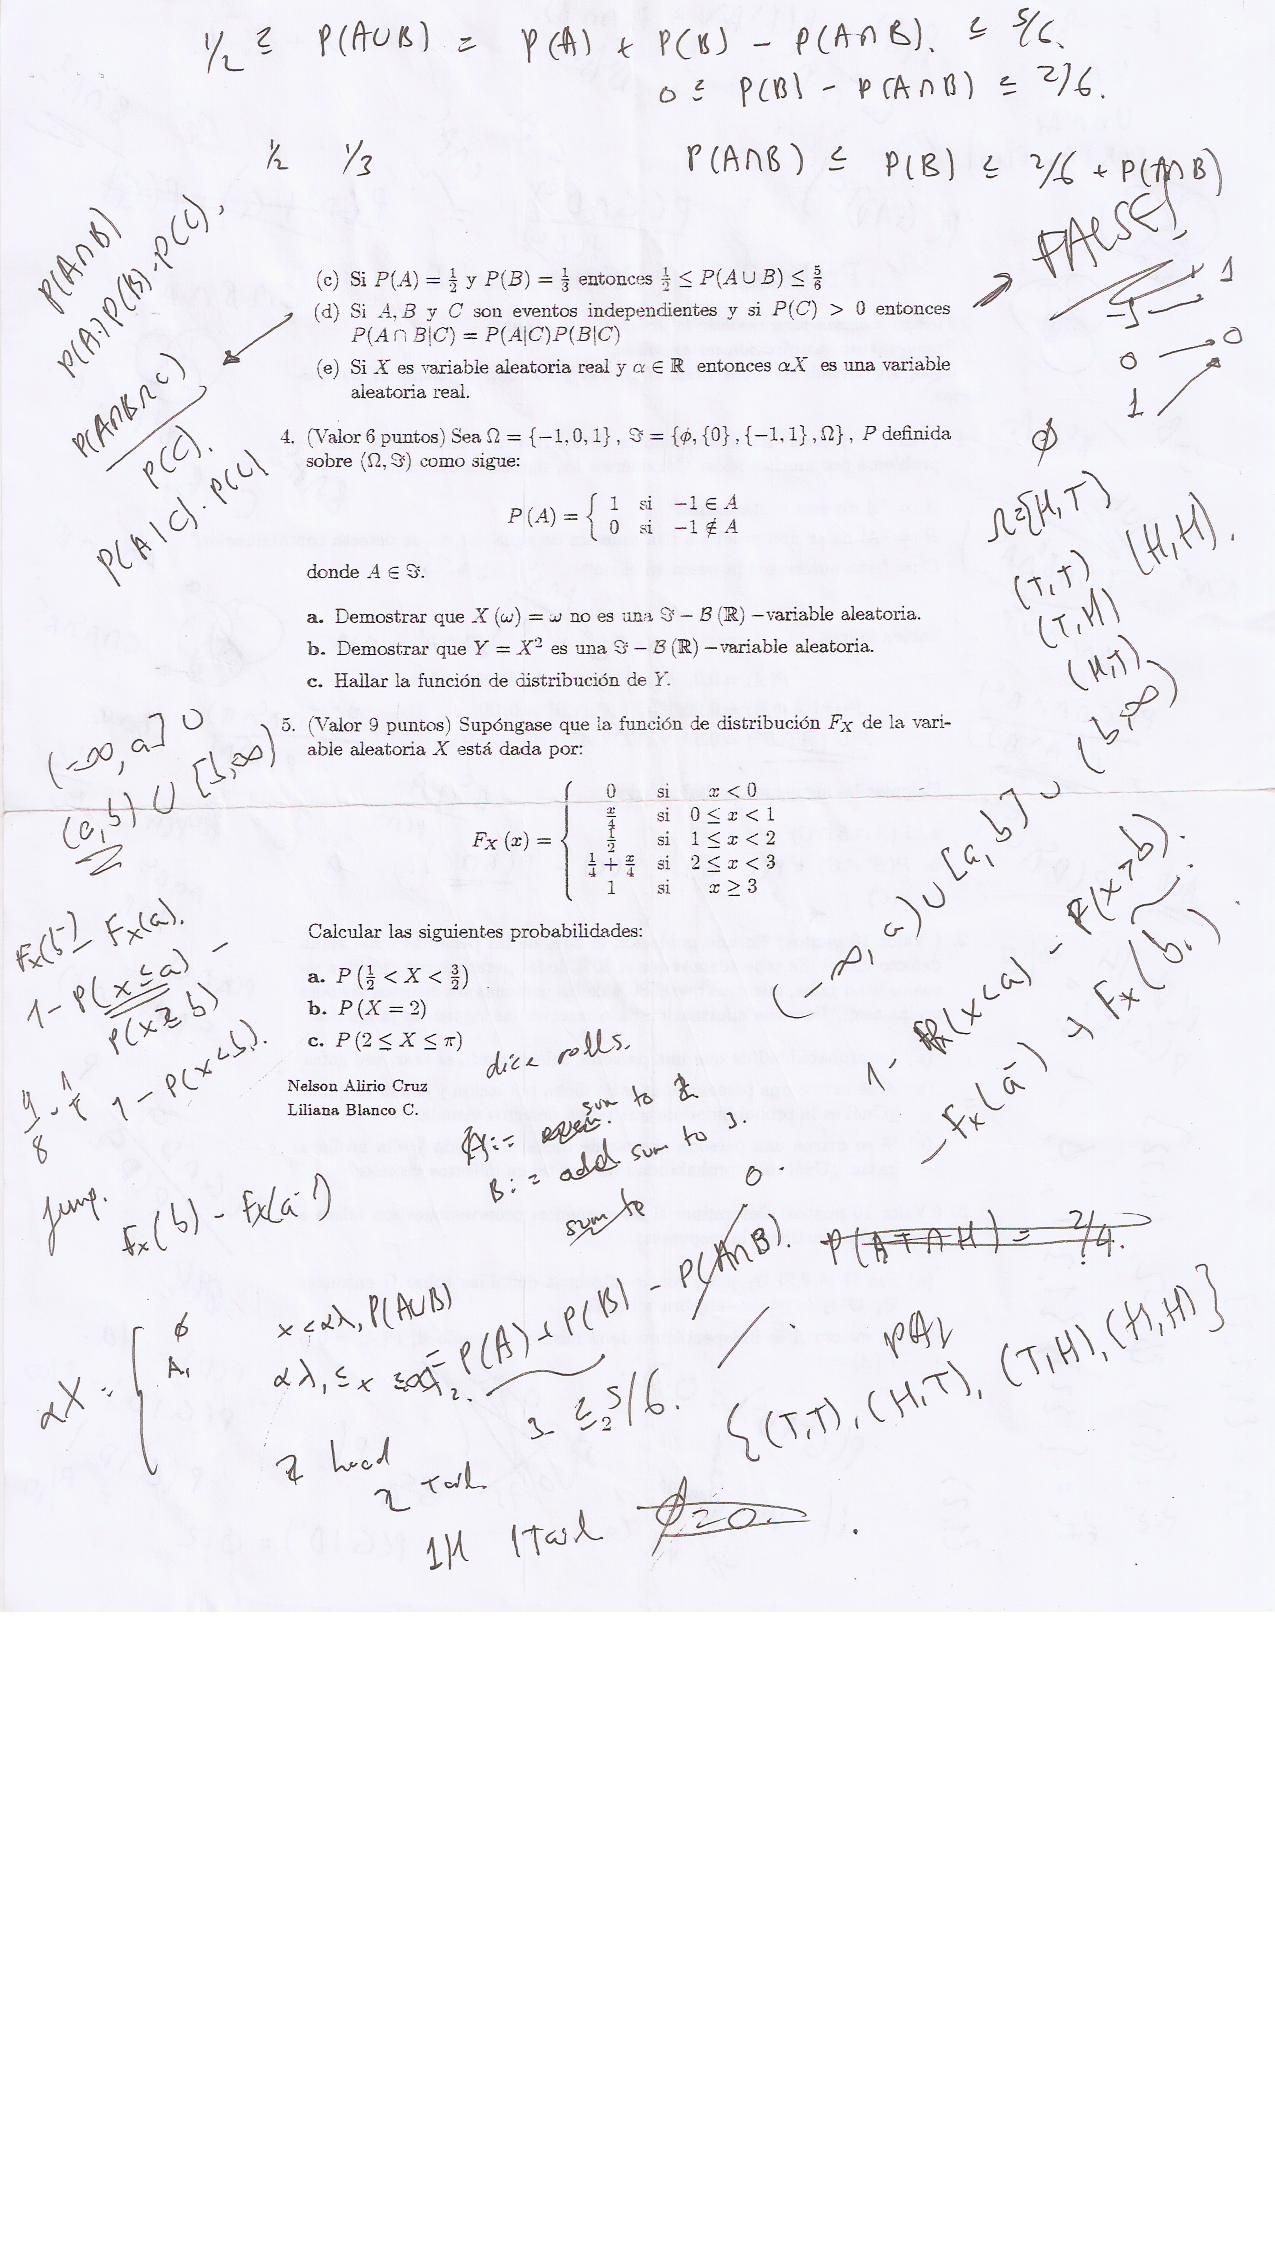 1/2 ≤ P(A∪B) = P(A) + P(B) - P(A∩B). ≤ 5/6.
0 ≤ P(B) - P(A∩B) ≤ 2/6.
1/2 1/3
P(A∩B) ≤ P(B) ≤ 2/6 + P(A∩B)
FALSE
P(A∩B)
P(A)P(B)-P(C).
P(A∩B∩C)
P(C).
P(A|C).P(C)
(c) Si P(A) = 1/2 y P(B) = 1/3 entonces 1/2 ≤ P(A∪B) ≤ 5/6
(d) Si A, B y C son eventos independientes y si P(C) > 0 entonces
P(A∩B|C) = P(A|C)P(B|C)
(e) Si X es variable aleatoria real y α ∈ ℝ entonces αX es una variable
aleatoria real.
-1 1
0 0
1
ϕ
4. (Valor 6 puntos) Sea Ω = {−1, 0, 1}, ℑ = {ϕ, {0}, {−1, 1}, Ω}, P definida
sobre (Ω, ℑ) como sigue:
P(A) = { 1 si −1 ∈ A
0 si −1 ∉ A
donde A ∈ ℑ.
a. Demostrar que X(ω) = ω no es una ℑ − B(ℝ) −variable aleatoria.
b. Demostrar que Y = X² es una ℑ − B(ℝ) −variable aleatoria.
c. Hallar la función de distribución de Y.
Ω={H,T}
(T,T) (H,H).
(T,H)
(H,T).
5. (Valor 9 puntos) Supóngase que la función de distribución F_X de la vari-
able aleatoria X está dada por:
F_X(x) = { 0 si x < 0
x/4 si 0 ≤ x < 1
1/2 si 1 ≤ x < 2
1/4 + x/4 si 2 ≤ x < 3
1 si x ≥ 3
Calcular las siguientes probabilidades:
a. P(1/2 < X < 3/2)
b. P(X = 2)
c. P(2 ≤ X ≤ π)
Nelson Alirio Cruz
Liliana Blanco C.
(-∞, a] ∪
(a,b) ∪ [b,∞)
Fx(b⁻) - Fx(a).
1-P(x≤a) -
P(x≥b)
1-P(x<b).
jump.
Fx(b) - Fx(a⁻)
(-∞, a) ∪ [a,b] ∪ (b,∞)
1- P(x<a) - P(x>b).
- Fx(a⁻) → Fx(b.)
dice rolls.
A:= sum to
B:= odd sum to 3.
sum to
0.
αX = { ϕ x<αλ₁
A₁ αλ₁ ≤ x
P(A∪B)
= P(A) + P(B) - P(A∩B).
≤ 5/6.
P(A)
{(T,T), (H,T), (T,H), (H,H)}
2 head
2 tail
1H 1Tail